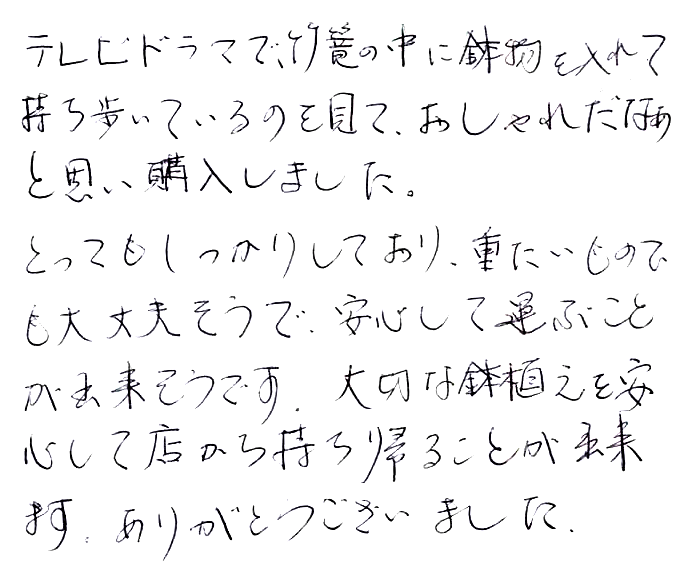 テレビドラマで、竹篭の中に鉢物を入れて
持ち歩いているのを見て、おしゃれだなぁ
と思い購入しました。
とってもしっかりしており、重たいもので
も大丈夫そうで、安心して運ぶこと
が出来そうです。大切な鉢植えを安
心して店から持ち帰ることが出来
ます。ありがとうございました。